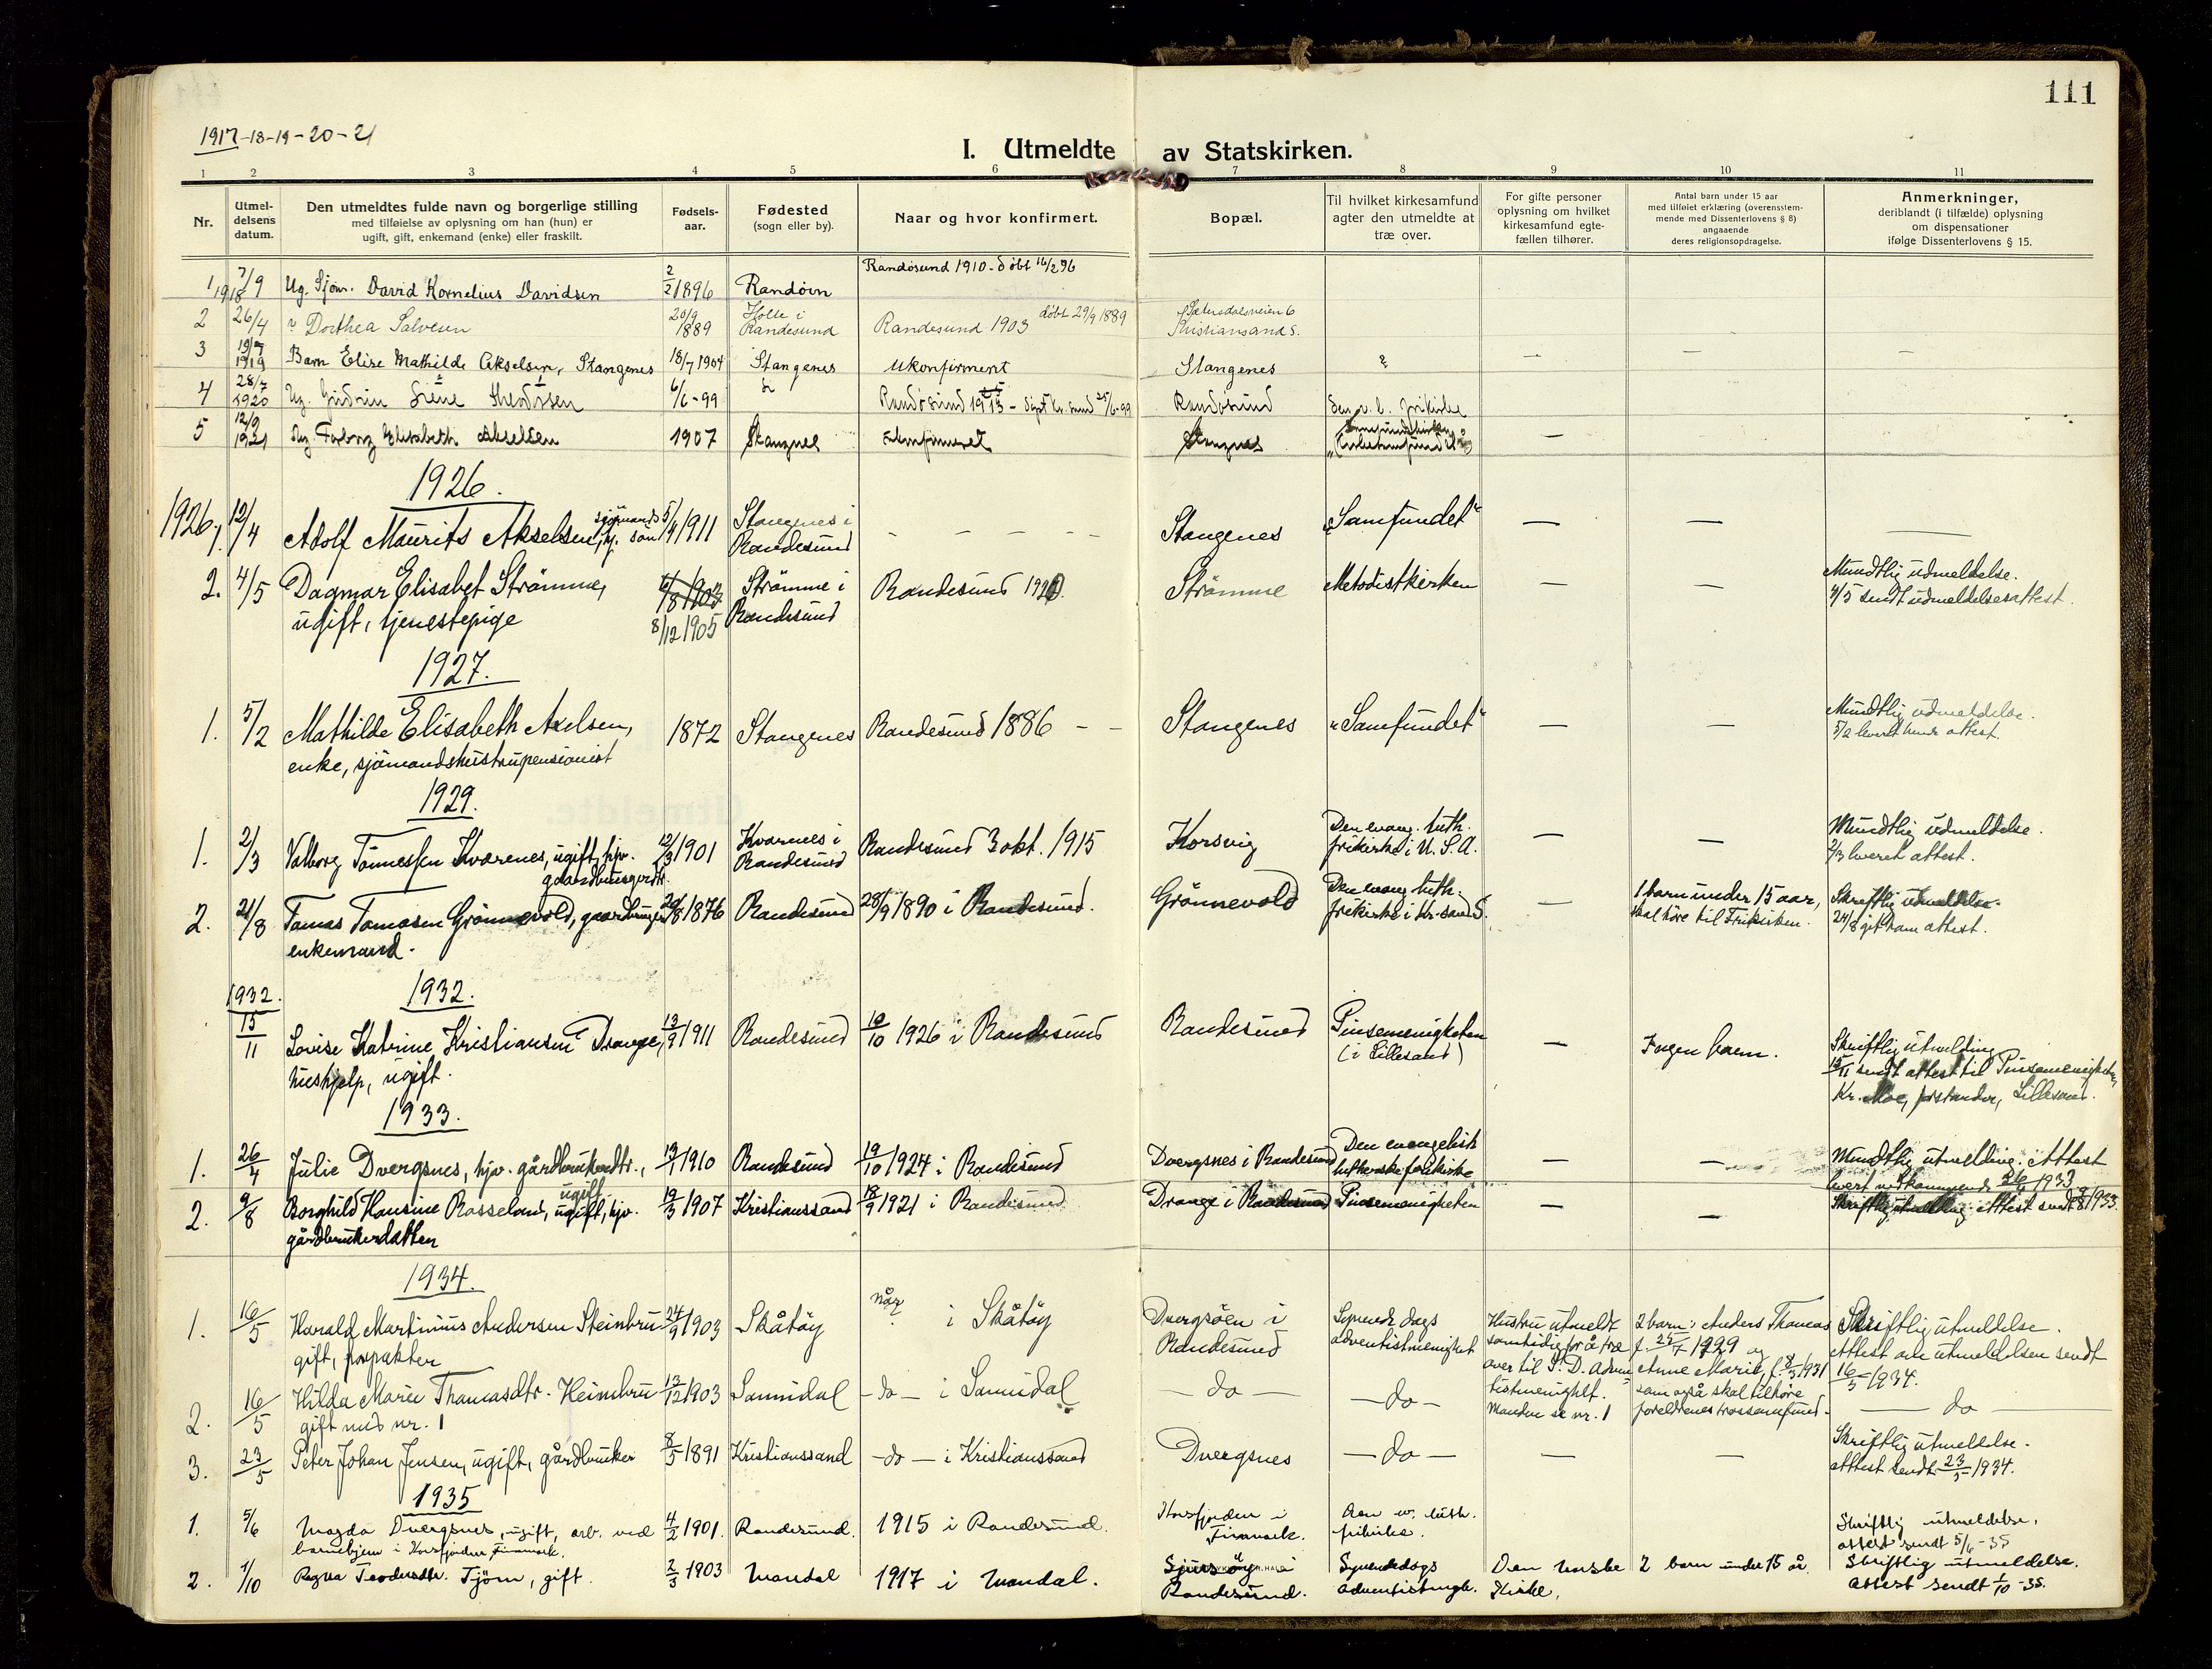 111
1917-18-19-20-21
I. Utmeldte av Statskirken.
1 2 3 4 5 6 7 8 9 10 11
Nr.
Utmel-
delsens
datum.
Den utmeldtes fulde navn og borgerlige stilling
med tilføielse av oplysning om han (hun) er
ugift, gift, enkemand (enke) eller fraskilt.
Fødsels-
aar.
Fødested
(sogn eller by).
Naar og hvor konfirmert.
Bopæl.
Til hvilket kirkesamfund
agter den utmeldte at
træ over.
For gifte personer
oplysning om hvilket
kirkesamfund egte-
fællen tilhører.
Antal barn under 15 aar
med tilføiet erklæring (overensstem-
mende med Dissenterlovens § 8)
angaaende
deres religionsopdragelse.
Anmerkninger,
deriblandt (i tilfælde) oplysning
om dispensationer
ifølge Dissenterlovens § 15.
1 7/9 Ug. Sjøm. David Kornelius Davidsen 2/2 1896 Randøen Randøsund 1910 - døbt 16/2 96
1918
2 26/4 Dorthea Salvesen 20/9 1889 Holte i Randesund Randesund 1903 døbt 29/9 1889 Sætersdalsveien 6 Kristiansand S.
3 1919 Barn Elise Mathilde Akselsen, Stangenes 18/7 1904 Stangenes ukonfirmert Stangenes ? — — —
4 28/7 1920 Ug. Gudrun 6/6-99 Randøsund Randøsund Den e. l. frikirke
5 12/9 1921 Ug. Elisabeth Akselsen 1907 Stangnes ukonfirmeret Stangnes —
1926.
1926, 1. 12/4 Adolf Maurits Akselsen, sjømands søn 5/4 1911 Stangenes i Randesund - - - - - Stangenes "Samfundet" — — —
2. 4/5 Dagmar Elisabet Strömme, 1903 Strömme i Randesund 1920. Strömme Metodistkirken — — Mundtlig udmeldelse.
ugift, tjenestepige 8/12 1905 Randesund 4/5 sendt udmeldelsesattest.
1927.
1. 5/2 Mathilde Elisabeth Axelsen, 1872 Stangenes Randesund 1886 - - Stangenes "Samfundet" — — Mundtlig udmeldelse.
enke, sjömandshustrupensionist 5/2 levert hende attest.
1929.
1. 2/3 Valborg Tönnessen Kvarenes, ugift, hjv. 12/3 1901 Kvarnes i Randesund Randesund 3 okt. 1915 Korsvig Den evang. luth. frikirke i U.S.A. — — Mundtlig udmeldelse.
2/3 leveret attest.
2. 21/8 Tomas Tomasen Grönnevold, gaardbruger 1876 Randesund 28/9 1890 i Randesund. Grönnevold Den evang. luth. frikirke i Kr-sand S. — 1 barn under 15 aar, skal höre til Frikirken. Skriftlig udmeldelse.
enkemand. 24/8 git ham attest.
1932. 1932.
15/11 Lovise Katrine Kristiansen Drange, 13/9 1911 Randesund 10/10 1926 i Randesund Randesund Pinsemenigheten (i Lillesand) — Ingen barn. Skriftlig utmelding
hushjelp, ugift. 15/11 sendt attest til Pinsemenigheten,
Kr. Moe, forstander, Lillesand.
1933.
1. 26/4 Julie Dvergsnes, hjv. gårdbrukerdtr., 1910 Randesund 19/10 1924 i Randesund Dvergsnes i Randesund Den evangelisk lutherske frikirke — — Mundtlig utmelding. Attest
levert vedkommende 26/4 1933
2. 9/8 Borghild Hansine Rosseland, ugift, hjv. 19/3 1907 Kristianssand 18/9 1921 i Randesund Drange i Randesund Pinsemenigheten — — Skriftlig utmelding. Attest sendt 9/8 1933.
gårdbrukerdatter
1934.
1. 16/5 Harald Martinius Andersen Steinbru 24/9 1903 Skåtöy når? i Skåtöy Dvergsöen i Randesund Syvende dags adventistmenighet Hustru utmeldt samtidig for å træ over til S. D. Adventistmenight. 2 barn: Anders Thomas f. 25/7 1929 og Anne Marie, f. 8/3 1931 som også skal tilhöre foreldrenes trossamfund. Skriftlig utmeldelse.
gift, forpakter Attest om utmeldelsen sendt 16/5 1934.
2. 16/5 Hilda Marie Thomasdtr. Heimbru 13/12 1903 Sannidal - do - i Sannidal — do — — do — Manden se nr. 1 — do —
gift med nr. 1
3. 23/5 Peter Johan Jensen, ugift, gårdbruker 8/5 1891 Kristianssand - do - i Kristianssand Dvergsnes — do — — — Skriftlig utmeldelse.
attest sendt 23/5 1934.
1935
1. 5/6 Magda Dvergsnes, ugift, arb. ved 4/2 1901. Randesund. 1915 i Randesund. Korsfjorden i Finmark. Den ev. luth. frikirke. Skriftlig utmeldelse,
barnehjem i Korsfjorden, Finmark. attest sendt 5/6-35
2. 1/10 Ragna Teodorsdtr. Tjöm, gift. 2/3 1903 Mandal 1917 i Mandal. Sjursöy i Randesund. Syvendedags adventistmgh. Den norske Kirke. 2 barn under 15 år. Skriftlig utmeldelse.
Attest sendt 1/10-35.